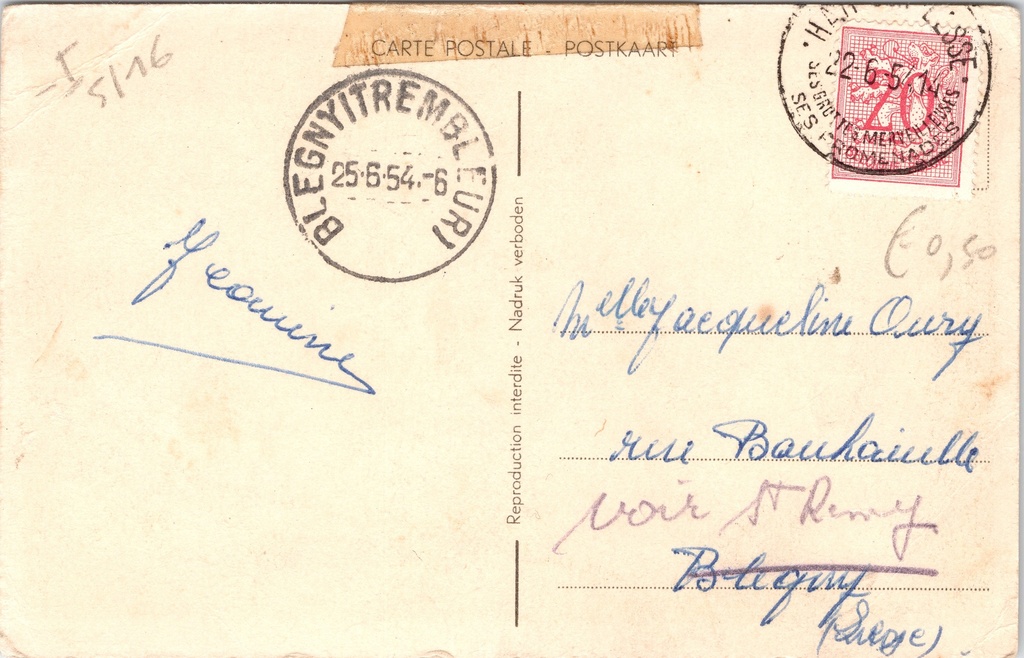 CARTE POSTALE - POSTKAART
I
5/16
BLEGNY(TREMBLEUR)
25·6·54.-6
HAN SUR LESSE
22 6-54.14
SES GROTTES MERVEILLEUSES
SES PROMENADES
20
€ 0,50
Jeanine
Reproduction interdite - Nadruk verboden
Melle Jacqueline Oury
rue Bouhouille
voir St Remy
Blegny
(Liège)